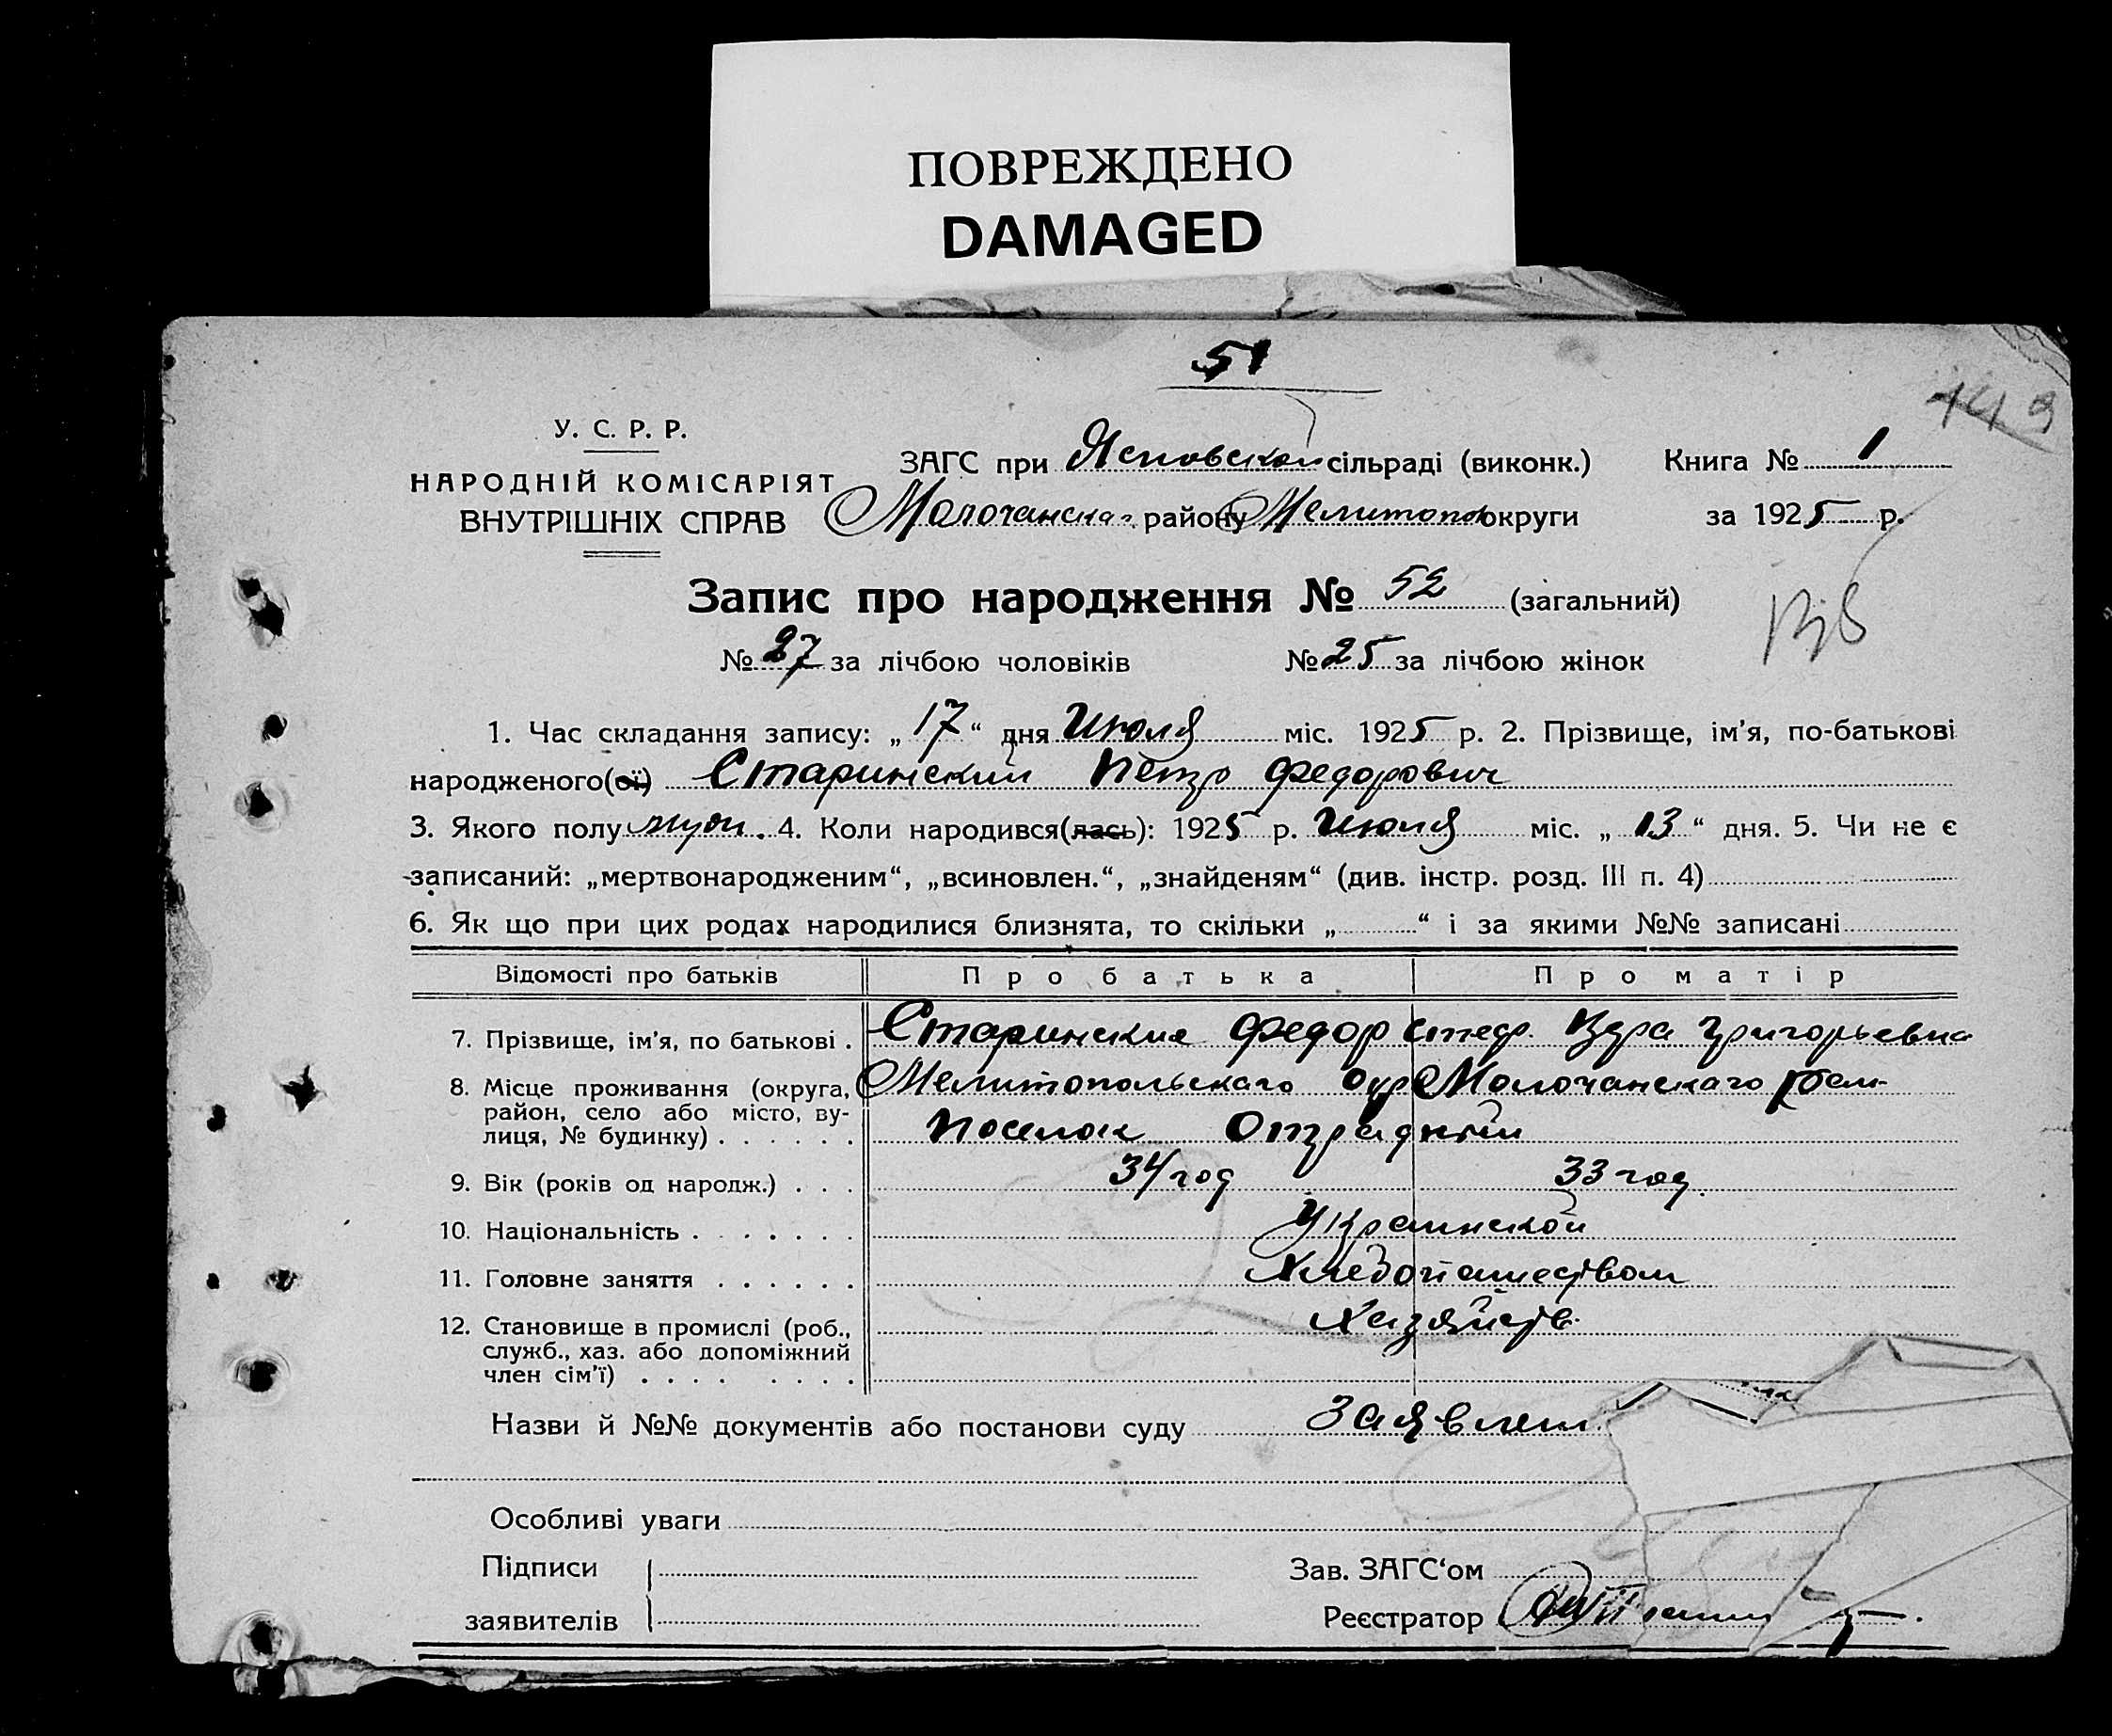 ПОВРЕЖДЕНО
DAMAGED
51
143
У. С. Р. Р.
НАРОДНІЙ КОМІСАРІЯТ
ВНУТРІШНІХ СПРАВ
ЗАГС при сільраді (виконк.) Книга № 1
району Мелитопол округи за 1925 р.
Запис про народження № 52 (загальний)
№ 27 за лічбою чоловіків № 25 за лічбою жінок
1. Час складання запису: „ 17 “ дня Июля міс. 1925 р. 2. Прізвище, ім’я, по-батькові
народженого(ої) Старинский Петр Федорович
3. Якого полу муж. 4. Коли народився(лась): 1925 р. Июля міс. „ 13 “ дня. 5. Чи не є
записаний: „мертвонародженим“, „всиновлен.“, „знайденям“ (див. інстр. розд. III п. 4)
6. Як що при цих родах народилися близнята, то скільки „ “ і за якими №№ записані
Відомості про батьків Про батька Про матір
7. Прізвище, ім’я, по батькові . Старинские Федор Стеф. Григорьевна
8. Місце проживання (округа, Мелитопольскаго окр Молочанскаго
район, село або місто, ву-
лиця, № будинку) . . . . . . Поселок Отрадный
9. Вік (років од народж.) . . . 34 год 33 год.
10. Національність . . . . . . . Украинской
11. Головне заняття . . . . . . Хлебопашеством
12. Становище в промислі (роб., Хазяйств.
служб., хаз. або допоміжний
член сім’ї) . . . . . . . .
Назви й №№ документів або постанови суду Заявлен.
Особливі уваги
Підписи Зав. ЗАГС‘ом
заявителів Реєстратор